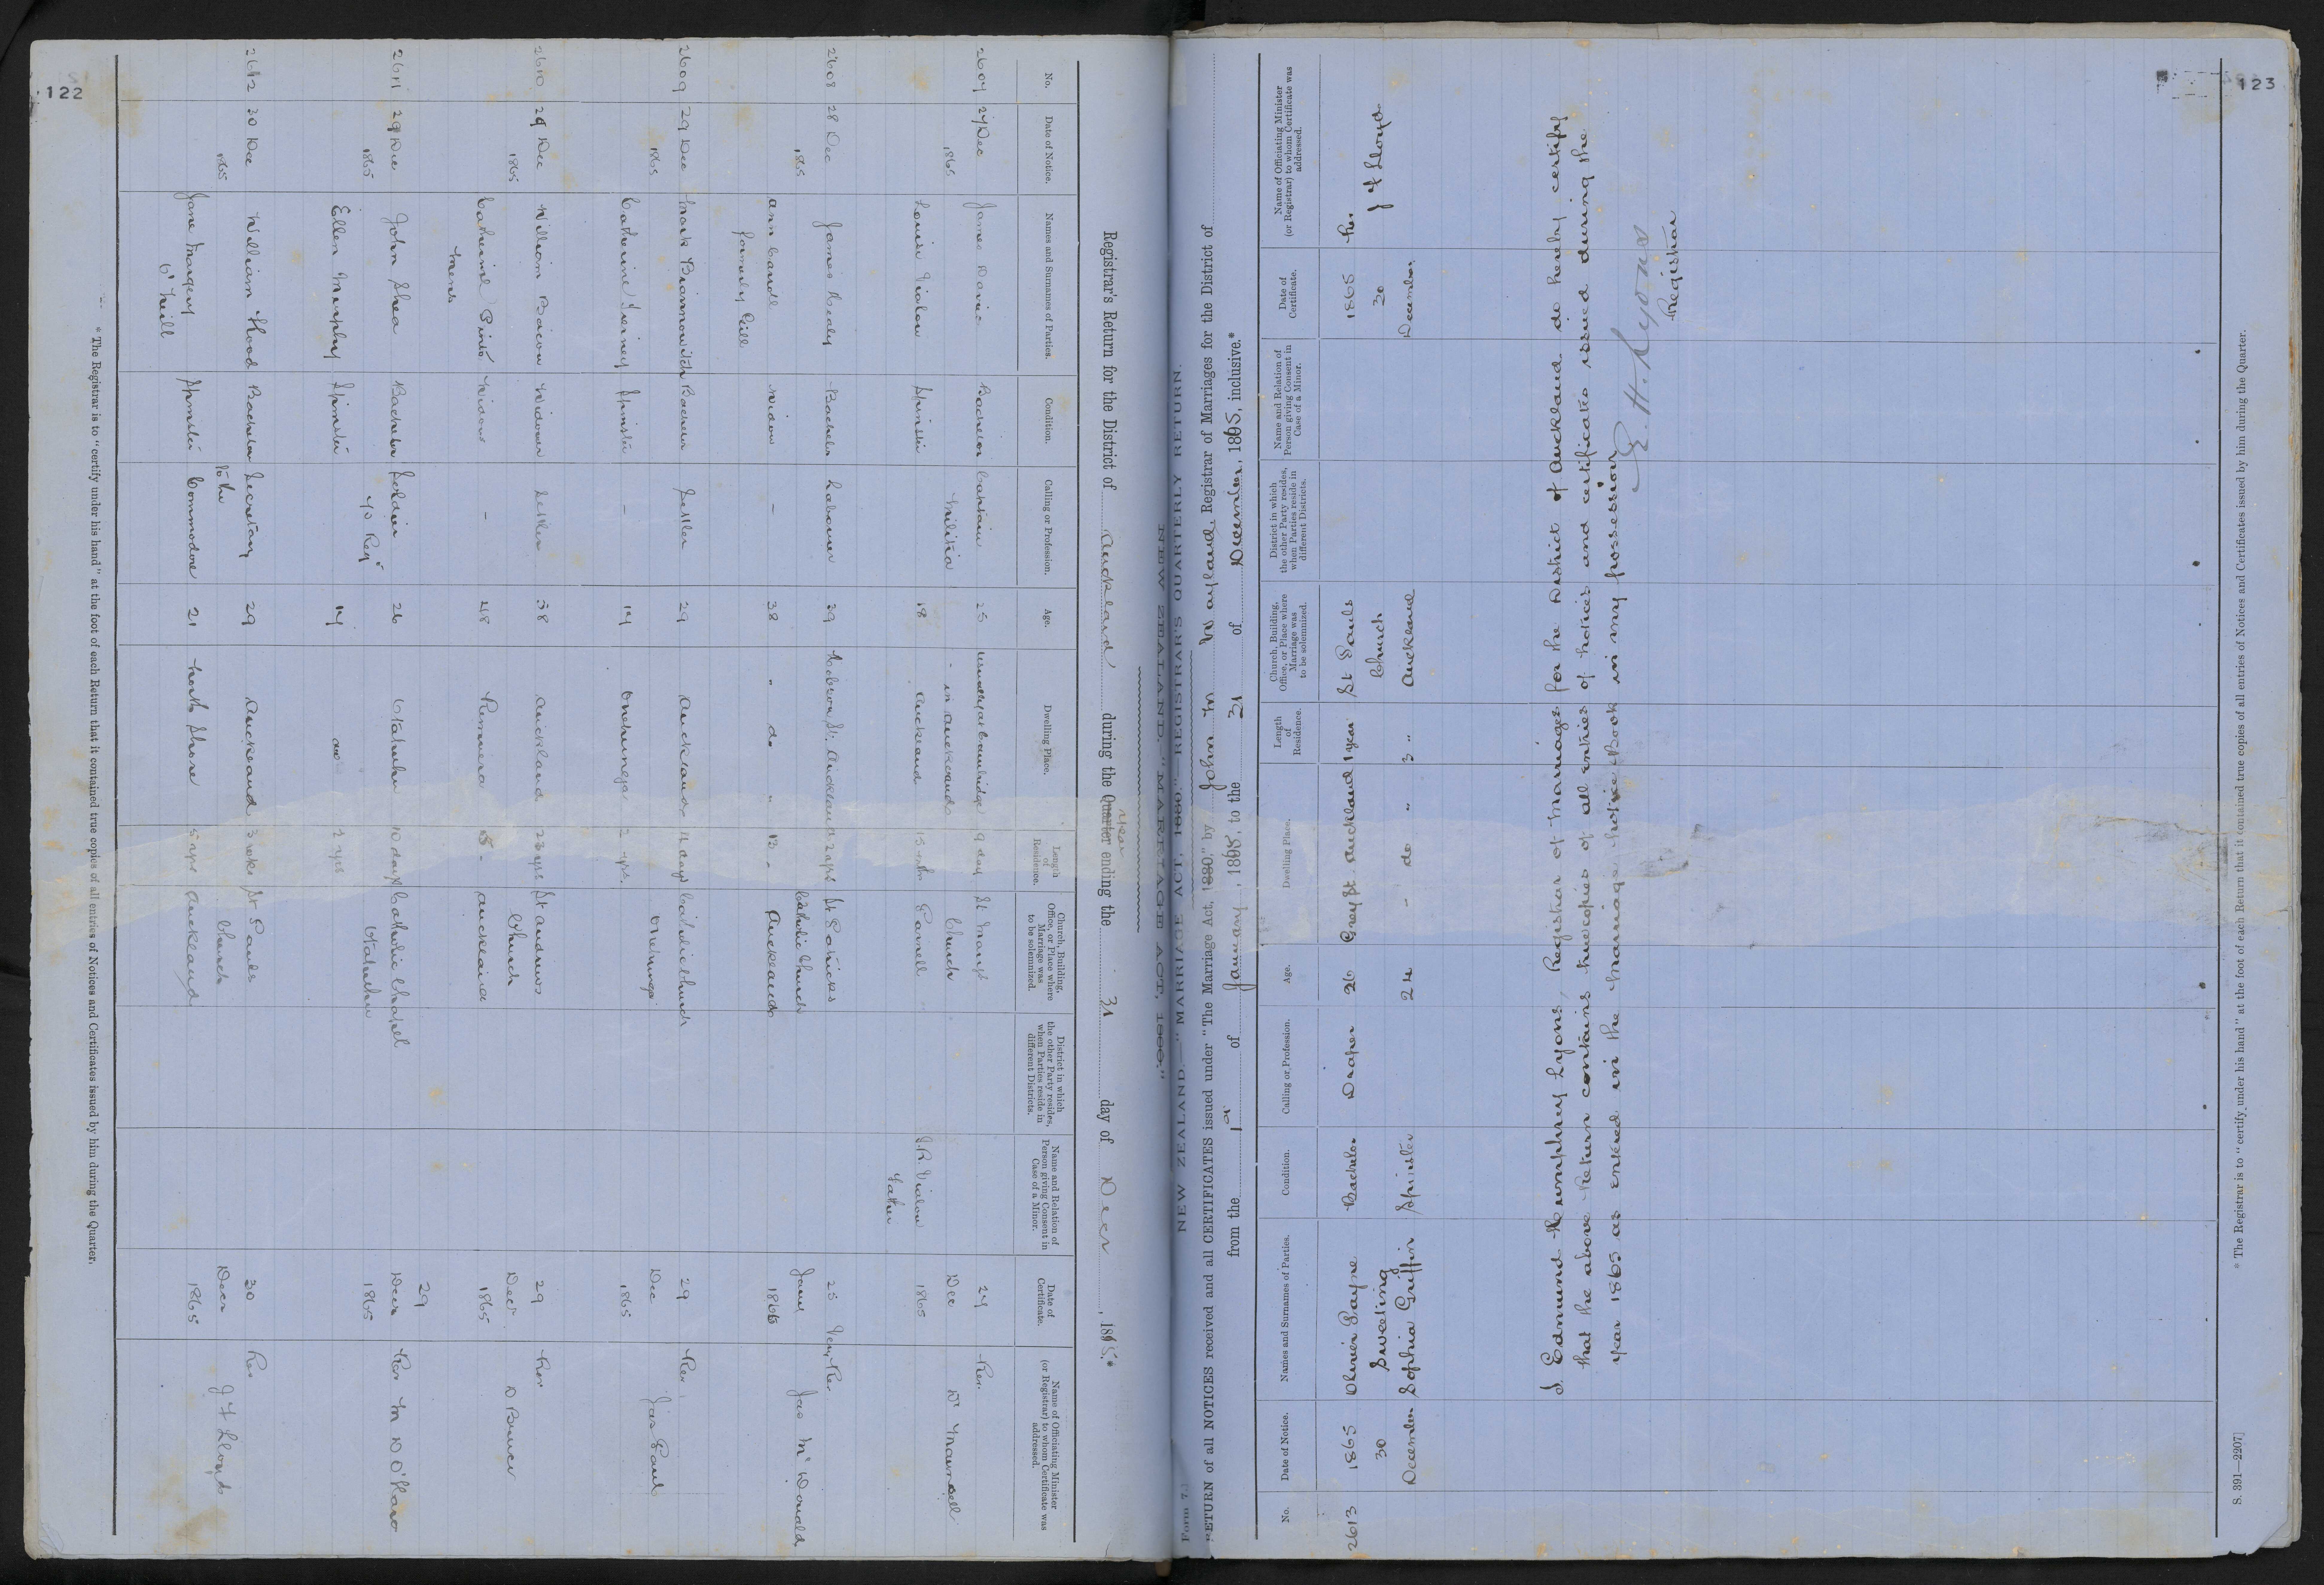 122
Registrar's Return for the District of Auckland during the Quarter year ending the 31 day of Decr, 1865.*
No.
Date of Notice.
Names and Surnames of Parties.
Condition.
Calling or Profession.
Age.
Dwelling Place.
Length of Residence.
Church, Building, Office, or Place where Marriage was to be solemnized.
District in which the other Party resides, when Parties reside in different Districts.
Name and Relation of Person giving Consent in Case of a Minor.
Date of Certificate.
Name of Officiating Minister (or Registrar) to whom Certificate was addressed.
2607 27 Dec James Davis Bachelor Captain 25 usually at Cambridge 9 days St Marys 27 Rev.
1865 Militia - in Auckland Church Dec Dr Maunsell
Louisa Vialou Spinster 18 Auckland 15 mths Parnell J.R. Vialou 1865
Father
2608 28 Dec James Healy Bachelor Labourer 39 Hobson St. Auckland 2 yrs St Patricks 23 Very Rev
1865 Catholic Church Jany Jas McDonald
Ann Caudle Widow - 38 " do " Auckland 1866
formerly Gill
2609 29 Dec Mark Bannowitch Bachelor Settler 29 Auckland 14 days Catholic Church 29 Rev
1865 Onehunga Dec Jas Paul
Catherine Tierney Spinster - 19 Onehunga 2 yrs. 1865
2610 29 Dec William Bacon Widower Settler 58 Auckland 23 yrs St Andrews 29 Rev
1865 Church Decr D Bruce
Catherine Pinto Widow - 48 Remuera Auckland 1865
Mears
2611 29 Dec John Shea Bachelor Soldier 26 Otahuhu 10 days Catholic Chapel 29 Rev M D O'Haro
1865 70 Regt Otahuhu Decr
Ellen Murphy Spinster do 2 yrs 1865
2612 30 Dec William Hood Bachelor Secretary 29 Auckland 3 wks St Pauls 30 Rev
1865 to the Church Decr J F Lloyd
Jane Margery Spinster Commodore 21 North Shore 5 yrs Auckland 1865
O'Neill
* The Registrar is to "certify under his hand" at the foot of each Return that it contained true copies of all entries of Notices and Certificates issued by him during the Quarter.
123
NEW ZEALAND.—"MARRIAGE ACT, 1880."—REGISTRAR'S QUARTERLY RETURN.
Form 7.]
RETURN of all NOTICES received and all CERTIFICATES issued under "The Marriage Act, 1880," by John M Wayland, Registrar of Marriages for the District of
from the 1st of January, 1865, to the 31 of December, 1865, inclusive.*
No.
Date of Notice.
Names and Surnames of Parties.
Condition.
Calling or Profession.
Age.
Dwelling Place.
Length of Residence.
Church, Building, Office, or Place where Marriage was to be solemnized.
District in which the other Party resides, when Parties reside in different Districts.
Name and Relation of Person giving Consent in Case of a Minor.
Date of Certificate.
Name of Officiating Minister (or Registrar) to whom Certificate was addressed.
2613 1865 Oliver Payne Bachelor Draper 26 Grey St. Auckland 1 year St Pauls 1865 Rev
30 Sweeting Church 30 J F Lloyd
December Sophia Griffin Spinster 24 - do " 3 " Auckland December
I, Edmund Humphrey Lyons, Registrar of Marriages for the District of Auckland do hereby certify
that the above Return contains true copies of all entries of notices and certificates issued during the
year 1865 as entered in the Marriage Notice Book in my possession
E. H. Lyons
Registrar
* The Registrar is to "certify under his hand" at the foot of each Return that it contained true copies of all entries of Notices and Certificates issued by him during the Quarter.
S. 391—2207]